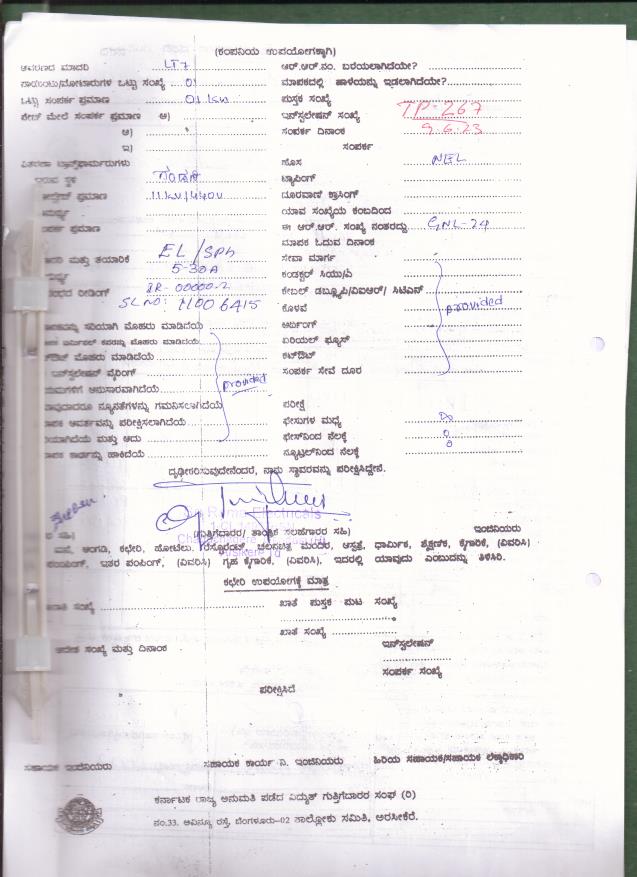 (ಕಂಪನಿಯ ಉಪಯೋಗಕ್ಕಾಗಿ)
ಆವರಣದ ಮಾದರಿ LT7 ಆರ್.ಆರ್.ನಂ. ಬರೆಯಲಾಗಿದೆಯೇ?
ಒಟ್ಟು ಸಂಖ್ಯೆ 01 ಮಾಪಕದಲ್ಲಿ ಹಾಳೆಯನ್ನು ಇಡಲಾಗಿದೆಯೇ?
ಒಟ್ಟು ಸಂಪರ್ಕ ಪ್ರಮಾಣ 01 KW ಪುಸ್ತಕ ಸಂಖ್ಯೆ
ಕೇಳಿದ ಮೇಲೆ ಸಂಪರ್ಕ ಪ್ರಮಾಣ ಅ) ಇನ್‌ಸ್ಟಲೇಷನ್ ಸಂಖ್ಯೆ TP-267
ಆ) ಸಂಪರ್ಕ ದಿನಾಂಕ 9.6.23
ಇ) ಸಂಪರ್ಕ
ವಿತರಣಾ ಟ್ರಾನ್ಸ್‌ಫಾರ್ಮರುಗಳು ಹೊಸ NEL
ಇರುವ ಸ್ಥಳ ಟ್ಯಾಪಿಂಗ್
ಪ್ರಮಾಣ 11KV/440V ದೂರವಾಣಿ ಕ್ರಾಸಿಂಗ್
ಯಾವ ಸಂಖ್ಯೆಯ ಕಂಬದಿಂದ
ಪ್ರಮಾಣ ಈ ಆರ್.ಆರ್. ಸಂಖ್ಯೆ ನಂತರದ್ದು GNL-24
ಮಾಪಕ ಓದುವ ದಿನಾಂಕ
ಮತ್ತು ತಯಾರಿಕೆ EL/SPh ಸೇವಾ ಮಾರ್ಗ
5-30A ಕಂಡಕ್ಟರ್ ಸಿಯು/ಎ
ರೀಡಿಂಗ್ IR-00000-2 ಕೇಬಲ್ ಡಬ್ಲ್ಯೂಪಿ/ವಿಐಆರ್/ ಸಿಟಿಎಸ್
SL NO: 11006415 ಕೊಳವೆ provided
ಸರಿಯಾಗಿ ಮೊಹರು ಮಾಡಿದೆಯೆ ಅರ್ಥಿಂಗ್
ಟರ್ಮಿನಲ್ ಕವರನ್ನು ಮೊಹರು ಮಾಡಿದೆಯೆ ಏರಿಯಲ್ ಫ್ಯೂಸ್
ಮೊಹರು ಮಾಡಿದೆಯೆ ಕಟ್‌ಔಟ್
ಇನ್‌ಸ್ಟಲೇಷನ್ ವೈರಿಂಗ್ ಸಂಪರ್ಕ ಸೇವೆ ದೂರ
ಅನುಸಾರವಾಗಿದೆಯೆ provided
ನ್ಯೂನತೆಗಳನ್ನು ಗಮನಿಸಲಾಗಿದೆಯೆ ಪರೀಕ್ಷೆ
ಆವರ್ತವನ್ನು ಪರೀಕ್ಷಿಸಲಾಗಿದೆಯೆ ಫೇಸುಗಳ ಮಧ್ಯೆ
ಮತ್ತು ಅದು ಫೇಸ್‌ನಿಂದ ನೆಲಕ್ಕೆ 0
ಕಾರ್ಡನ್ನು ಹಾಕಿದೆಯೆ ನ್ಯೂಟ್ರಲ್‌ನಿಂದ ನೆಲಕ್ಕೆ 0
ದೃಢೀಕರಿಸುವುದೇನೆಂದರೆ, ನಾನು ಸ್ಥಾವರವನ್ನು ಪರೀಕ್ಷಿಸಿದ್ದೇನೆ.
Electricals
(ಗುತ್ತಿಗೆದಾರರ/ ತಾಂತ್ರಿಕ ಸಲಹೆಗಾರರ ಸಹಿ) ಇಂಜಿನಿಯರು
ಮನೆ, ಅಂಗಡಿ, ಕಛೇರಿ, ಹೋಟೆಲು, ರೆಸ್ಟೊರೆಂಟ್, ಚಲನಚಿತ್ರ ಮಂದಿರ, ಆಸ್ಪತ್ರೆ, ಧಾರ್ಮಿಕ, ಶೈಕ್ಷಣಿಕ, ಕೈಗಾರಿಕೆ, (ವಿವರಿಸಿ)
ಇತರ ಪಂಪಿಂಗ್, (ವಿವರಿಸಿ) ಗೃಹ ಕೈಗಾರಿಕೆ, (ವಿವರಿಸಿ), ಇದರಲ್ಲಿ ಯಾವುದು ಎಂಬುದನ್ನು ತಿಳಿಸಿರಿ.
ಕಛೇರಿ ಉಪಯೋಗಕ್ಕೆ ಮಾತ್ರ
ಸಂಖ್ಯೆ ಖಾತೆ ಪುಸ್ತಕ ಪುಟ ಸಂಖ್ಯೆ
ಖಾತೆ ಸಂಖ್ಯೆ
ಆದೇಶ ಸಂಖ್ಯೆ ಮತ್ತು ದಿನಾಂಕ ಇನ್‌ಸ್ಟಲೇಷನ್
ಸಂಪರ್ಕ ಸಂಖ್ಯೆ
ಪರೀಕ್ಷಿಸಿದೆ
ಸಹಾಯಕ ಇಂಜಿನಿಯರು ಸಹಾಯಕ ಕಾರ್ಯ ನಿ. ಇಂಜಿನಿಯರು ಹಿರಿಯ ಸಹಾಯಕ/ಸಹಾಯಕ ಲೆಕ್ಕಾಧಿಕಾರಿ
ಕರ್ನಾಟಕ ರಾಜ್ಯ ಅನುಮತಿ ಪಡೆದ ವಿದ್ಯುತ್ ಗುತ್ತಿಗೆದಾರರ ಸಂಘ (ರಿ)
ನಂ.33. ಅವಿನ್ಯೂ ರಸ್ತೆ, ಬೆಂಗಳೂರು-02 ತಾಲ್ಲೋಕು ಸಮಿತಿ, ಅರಸೀಕೆರೆ.